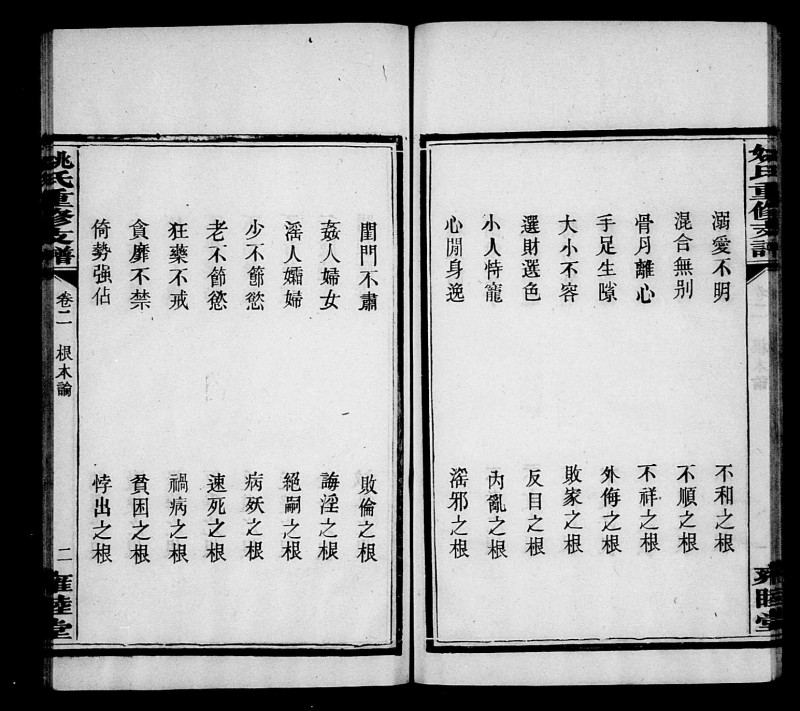 姚氏重修支譜
雍睦堂
溺愛不明 不和之根
混合無别 不順之根
骨月離心 不祥之根
手足生隙 外侮之根
大小不容 敗家之根
選財選色 反目之根
小人恃寵 內亂之根
心閒身逸 滛邪之根
閨門不肅 敗倫之根
姦人婦女 誨淫之根
滛人孀婦 絕嗣之根
少不節慾 病殀之根
老不節慾 速死之根
狂藥不戒 禍病之根
貪靡不禁 貧困之根
倚勢強佔 悖出之根
姚氏重修支譜 卷二 根本論 二 雍睦堂